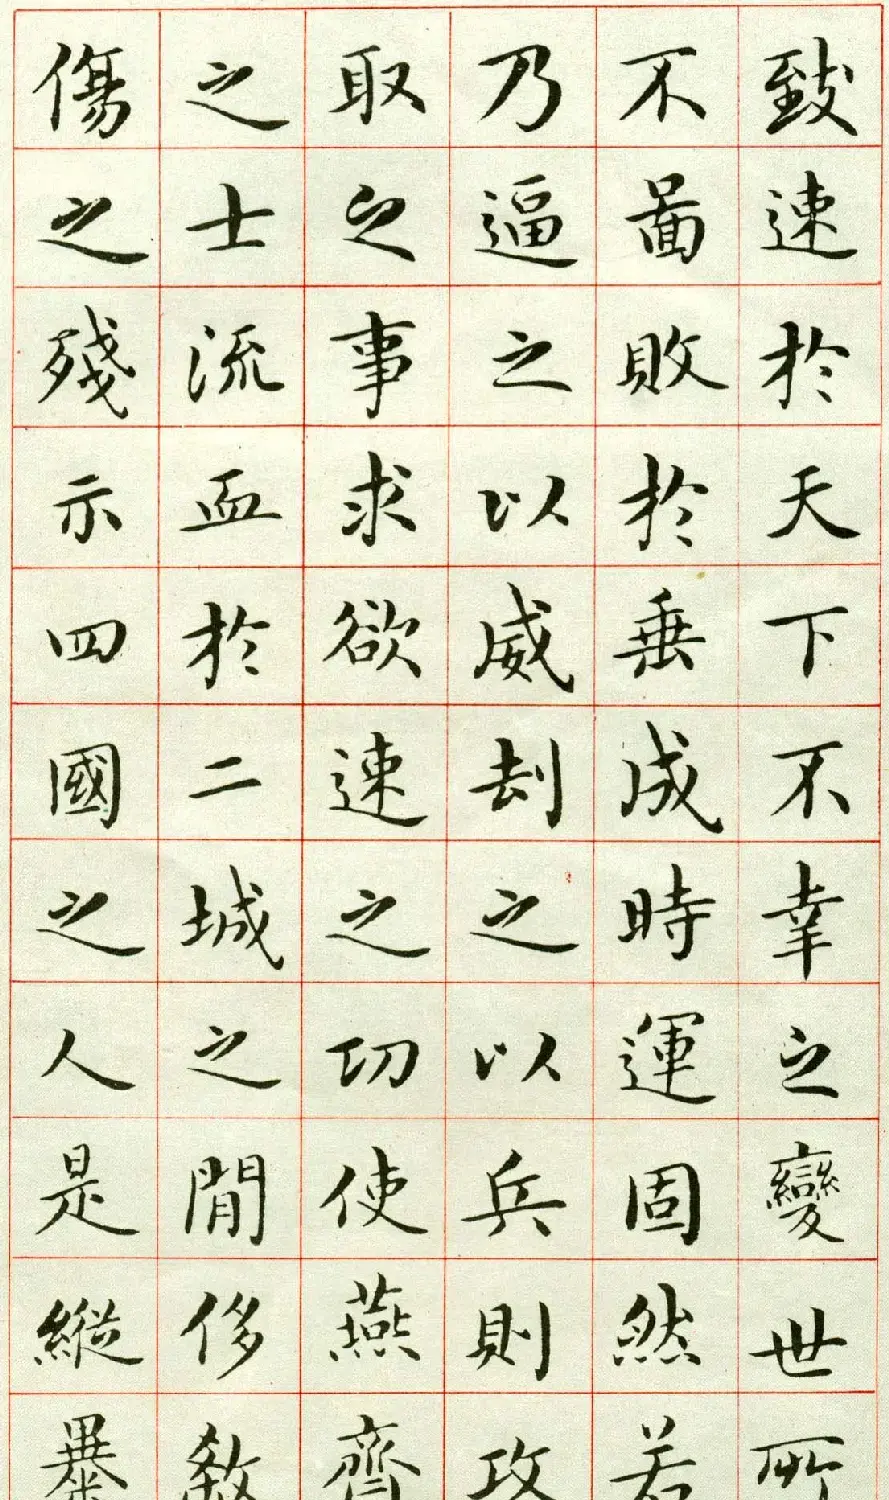 致速於天下不幸之變世所
不啚敗於垂成時運固然若
乃逼之以威刼之以兵則攻
取之事求欲速之功使燕齊
之士流血於二城之閒侈殺
傷之殘示四國之人是縱暴